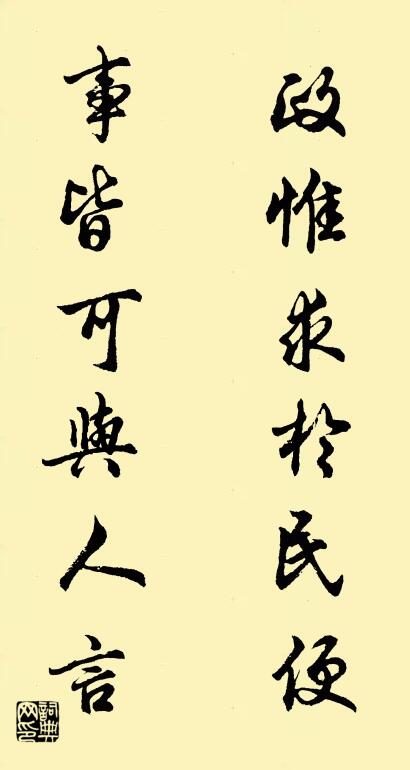 政惟求於民便
事皆可與人言
詞典網印